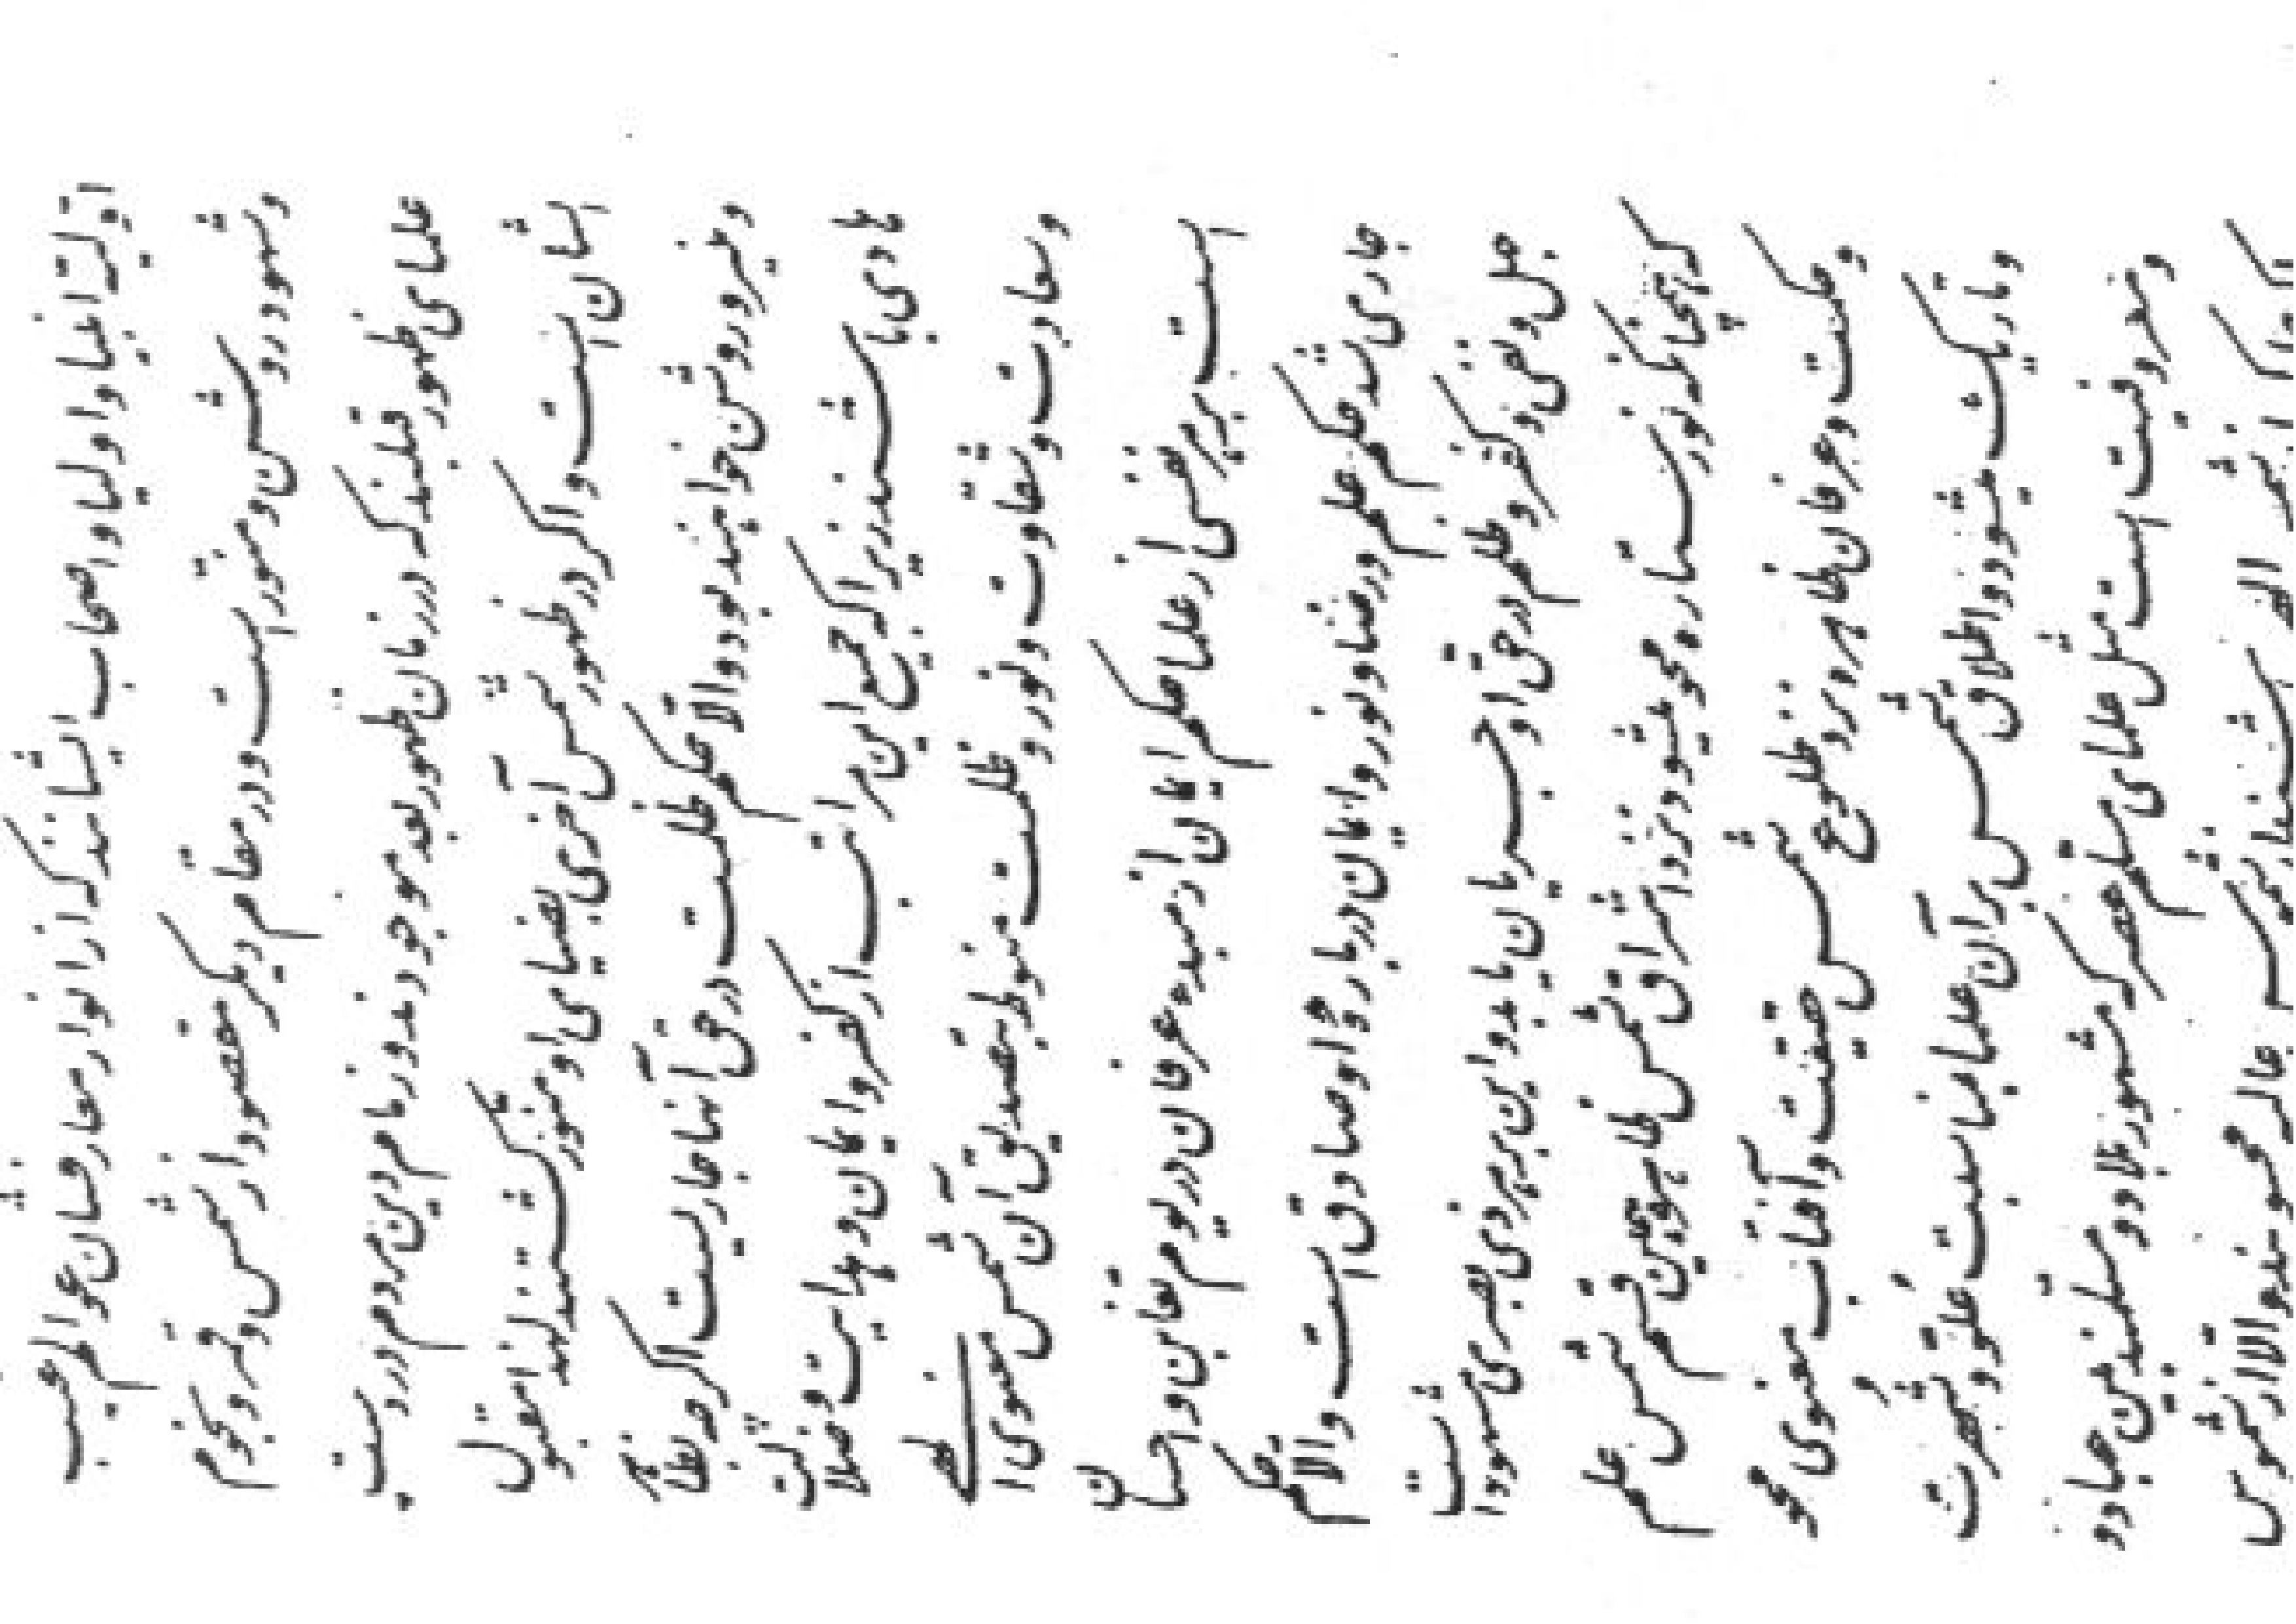 اولیّت انبیا و اولیا و اصحاب ایشانند که از انوار معارفشان عوالم غیب
و شهود روشن و منوّر است و در مقام دیگر مقصود از شمس و قمر و نجوم
علمای ظهور قبلند که در زمان ظهور بعد موجودند و زمام دین مردم در دست
ایشان است و اگر در ظهور شمس اخری بضیای او منوّر گشتند لهذا مقبول
و منیر و روشن خواهند بود و الّا حکم ظلمت در حق آنها جاریست اگر چه بظاهر
هادی باشند زیرا که جمیع این مراتب از کفر و ایمان و هدایت و ضلالت
و سعادت و شقاوت و نور و ظلمت منوط بتصدیق آن شمس معنوی الهی
است بر هر نفسی از علما حکم ایمان از مبدء عرفان در یوم تغابن و احسان
جاری شد حکم علم و رضا و نور و ایمان درباره او صادق است و الّا حکم
جهل و نفی و کفر و ظلم در حق او جریان یابد و این بر هر ذی بصری مشهود است
که همچنانکه نور ستاره محو میشود نزد اشراق شمس ظاهره همین قسم شمس علم
و حکمت و عرفان ظاهره نزد طلوع شمس حقیقت و آفتاب معنوی محو
و تاریک میشود و اطلاق شمس بر آن علما بمناسبت علوّ و شهرت
و معروفیت است مثل علمای مسلّم عصر که مشهور بلاد و مسلّمند بین عباد و
اگر حاکی از شمس الهی باشند از شموس عالیه محسوبند و الّا از شموس